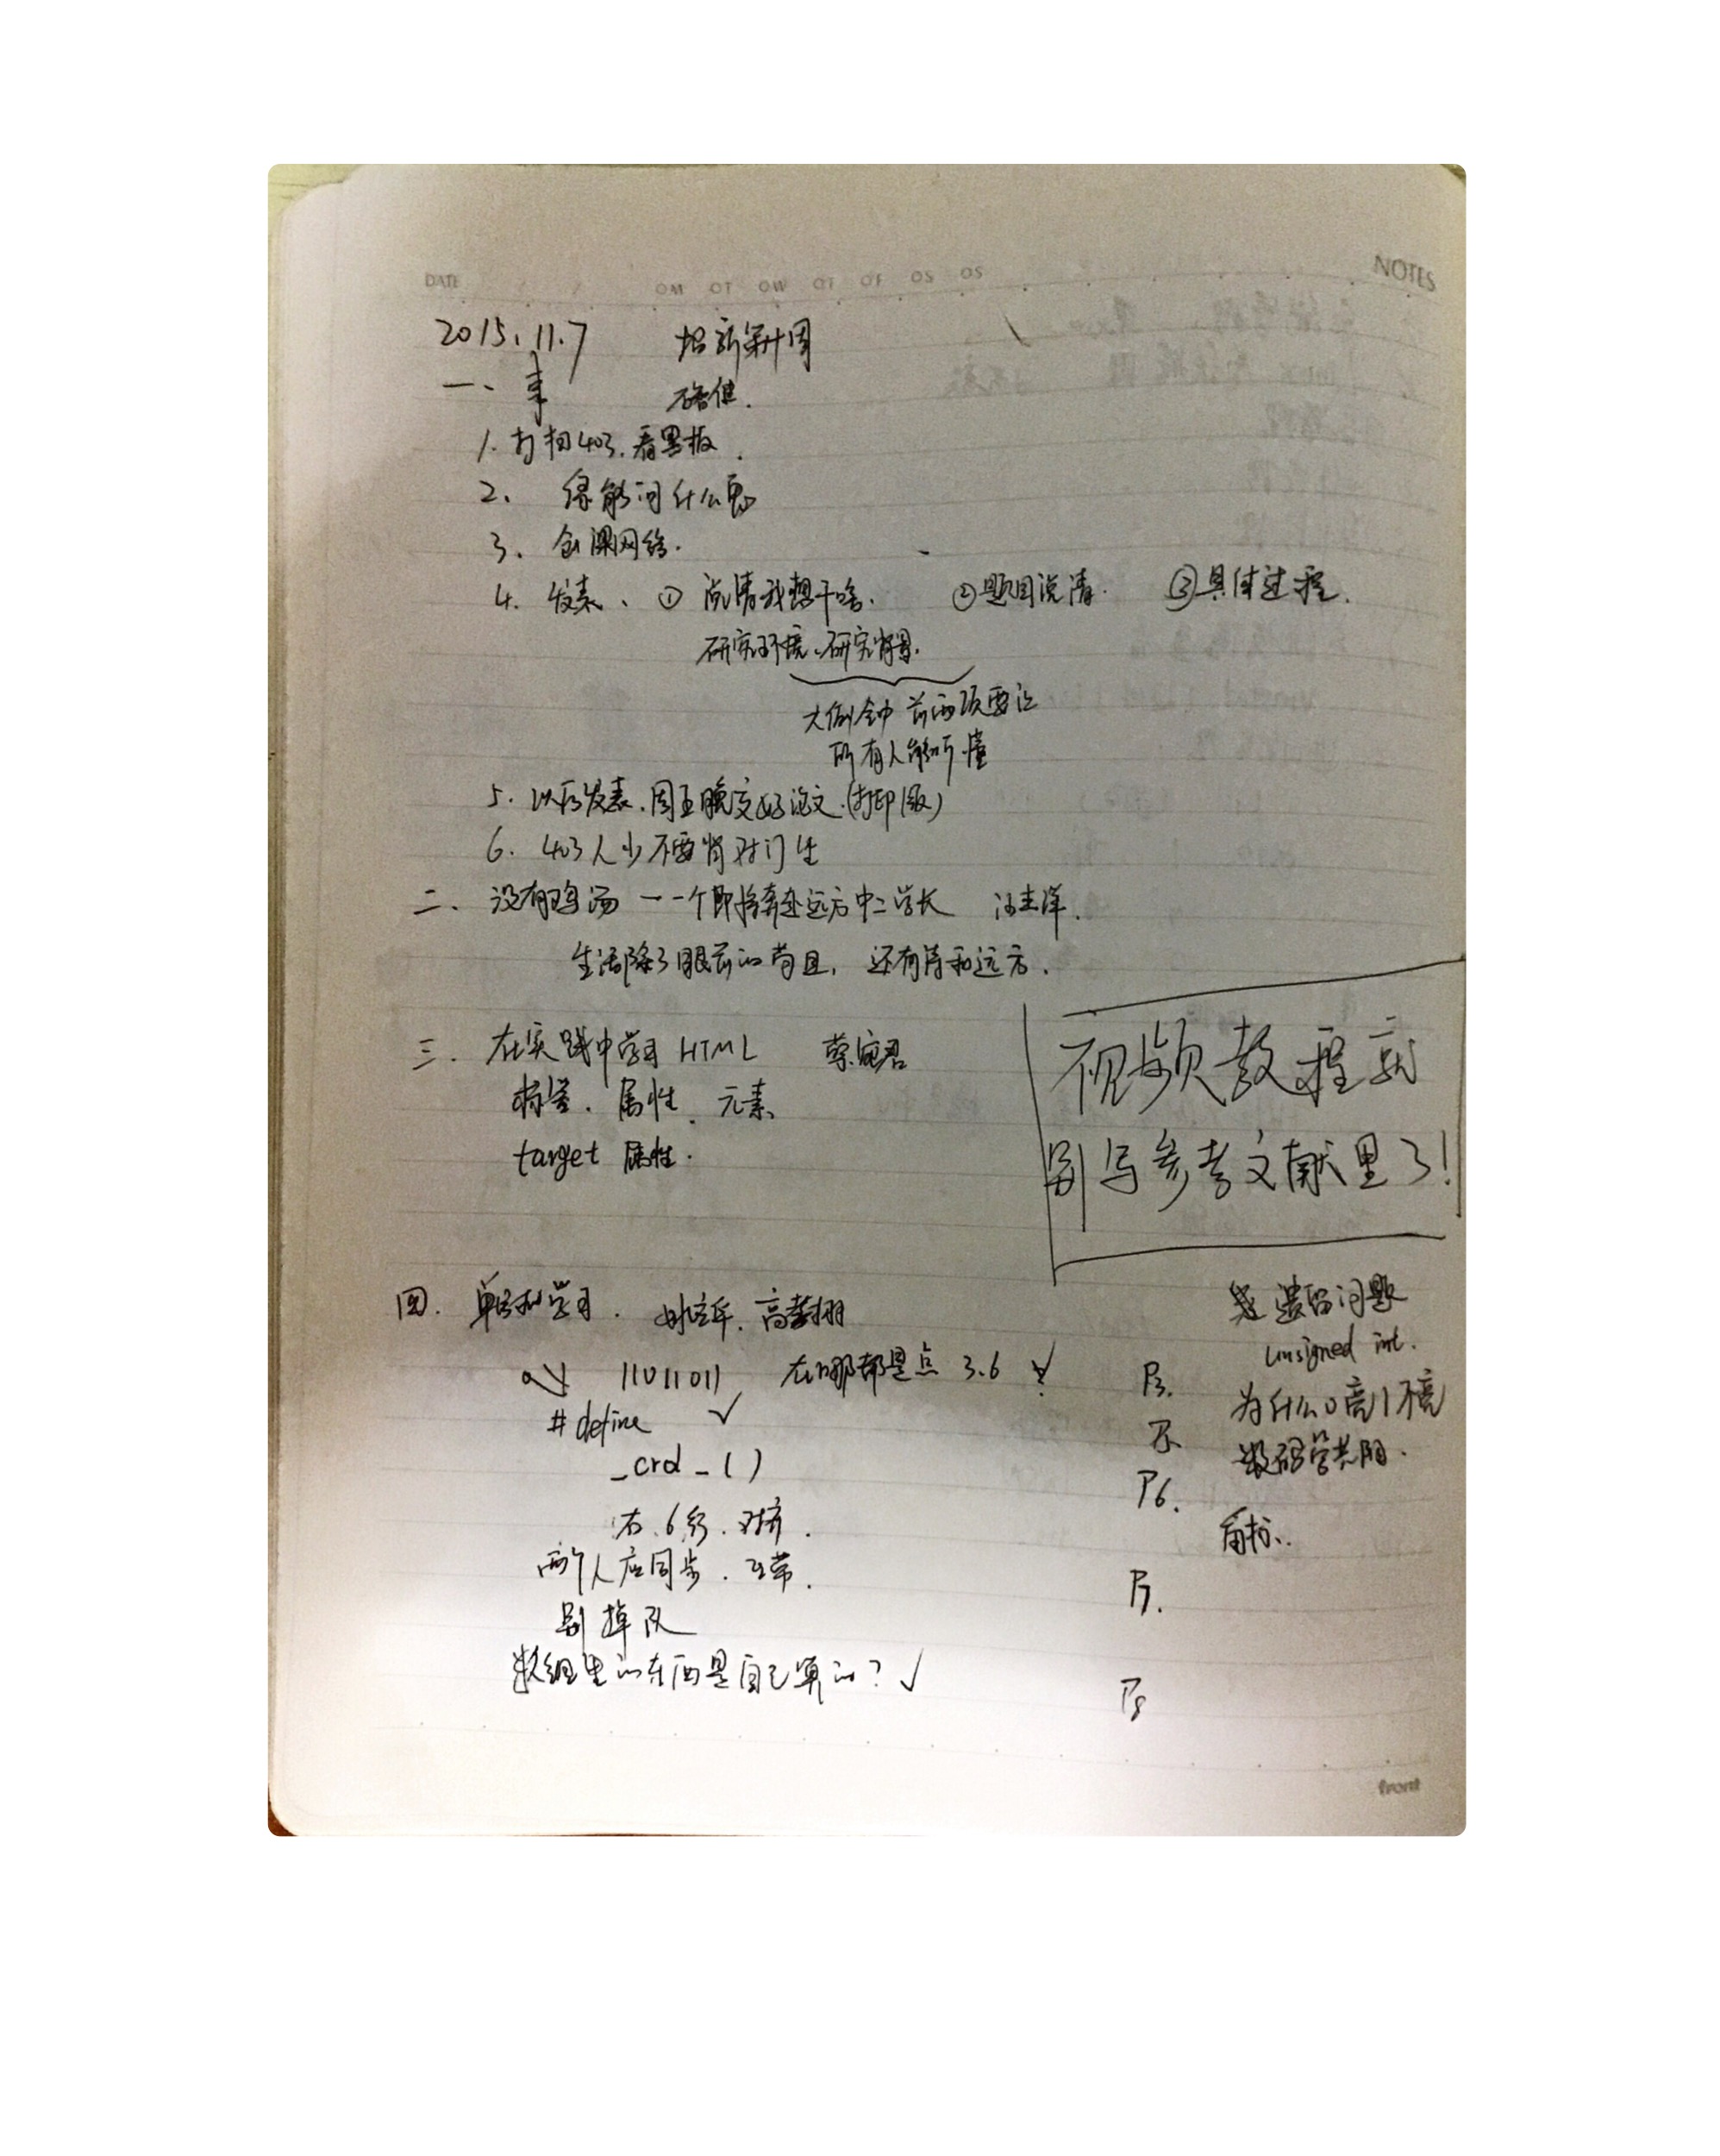 DATE
OM OT OW OT OF OS OS
NOTES
2015.11.7 第十周
一、事
1. 打扫403.看黑板.
2. 能问什么
3. 网络.
4. 发表、① 说清我想干啥. ②题目说清. ③具体过程.
研究环境、研究背景.
前两项要让
所有人能听懂
5. 以后发表.周五晚交好论文.(打印版)
6. 403人少不要背对门坐
二、没有鸡汤 一一个即将奔赴远方中二学长
生活除了眼前的苟且，还有诗和远方.
三. 在实践中学习 HTML
标签. 属性. 元素
target 属性.
视频教程就
别写参考文献里了!
四. 单片机学习.
11011011 在哪都是点 3.6
#define ✓
_crol_()
右.6行.对齐.
两个人应同步.
别掉队
数组里的东西是自己算的? ✓
遗留问题
unsigned int.
P3. 为什么0亮1不亮
数码管共阳.
P6.
P7.
P8
front